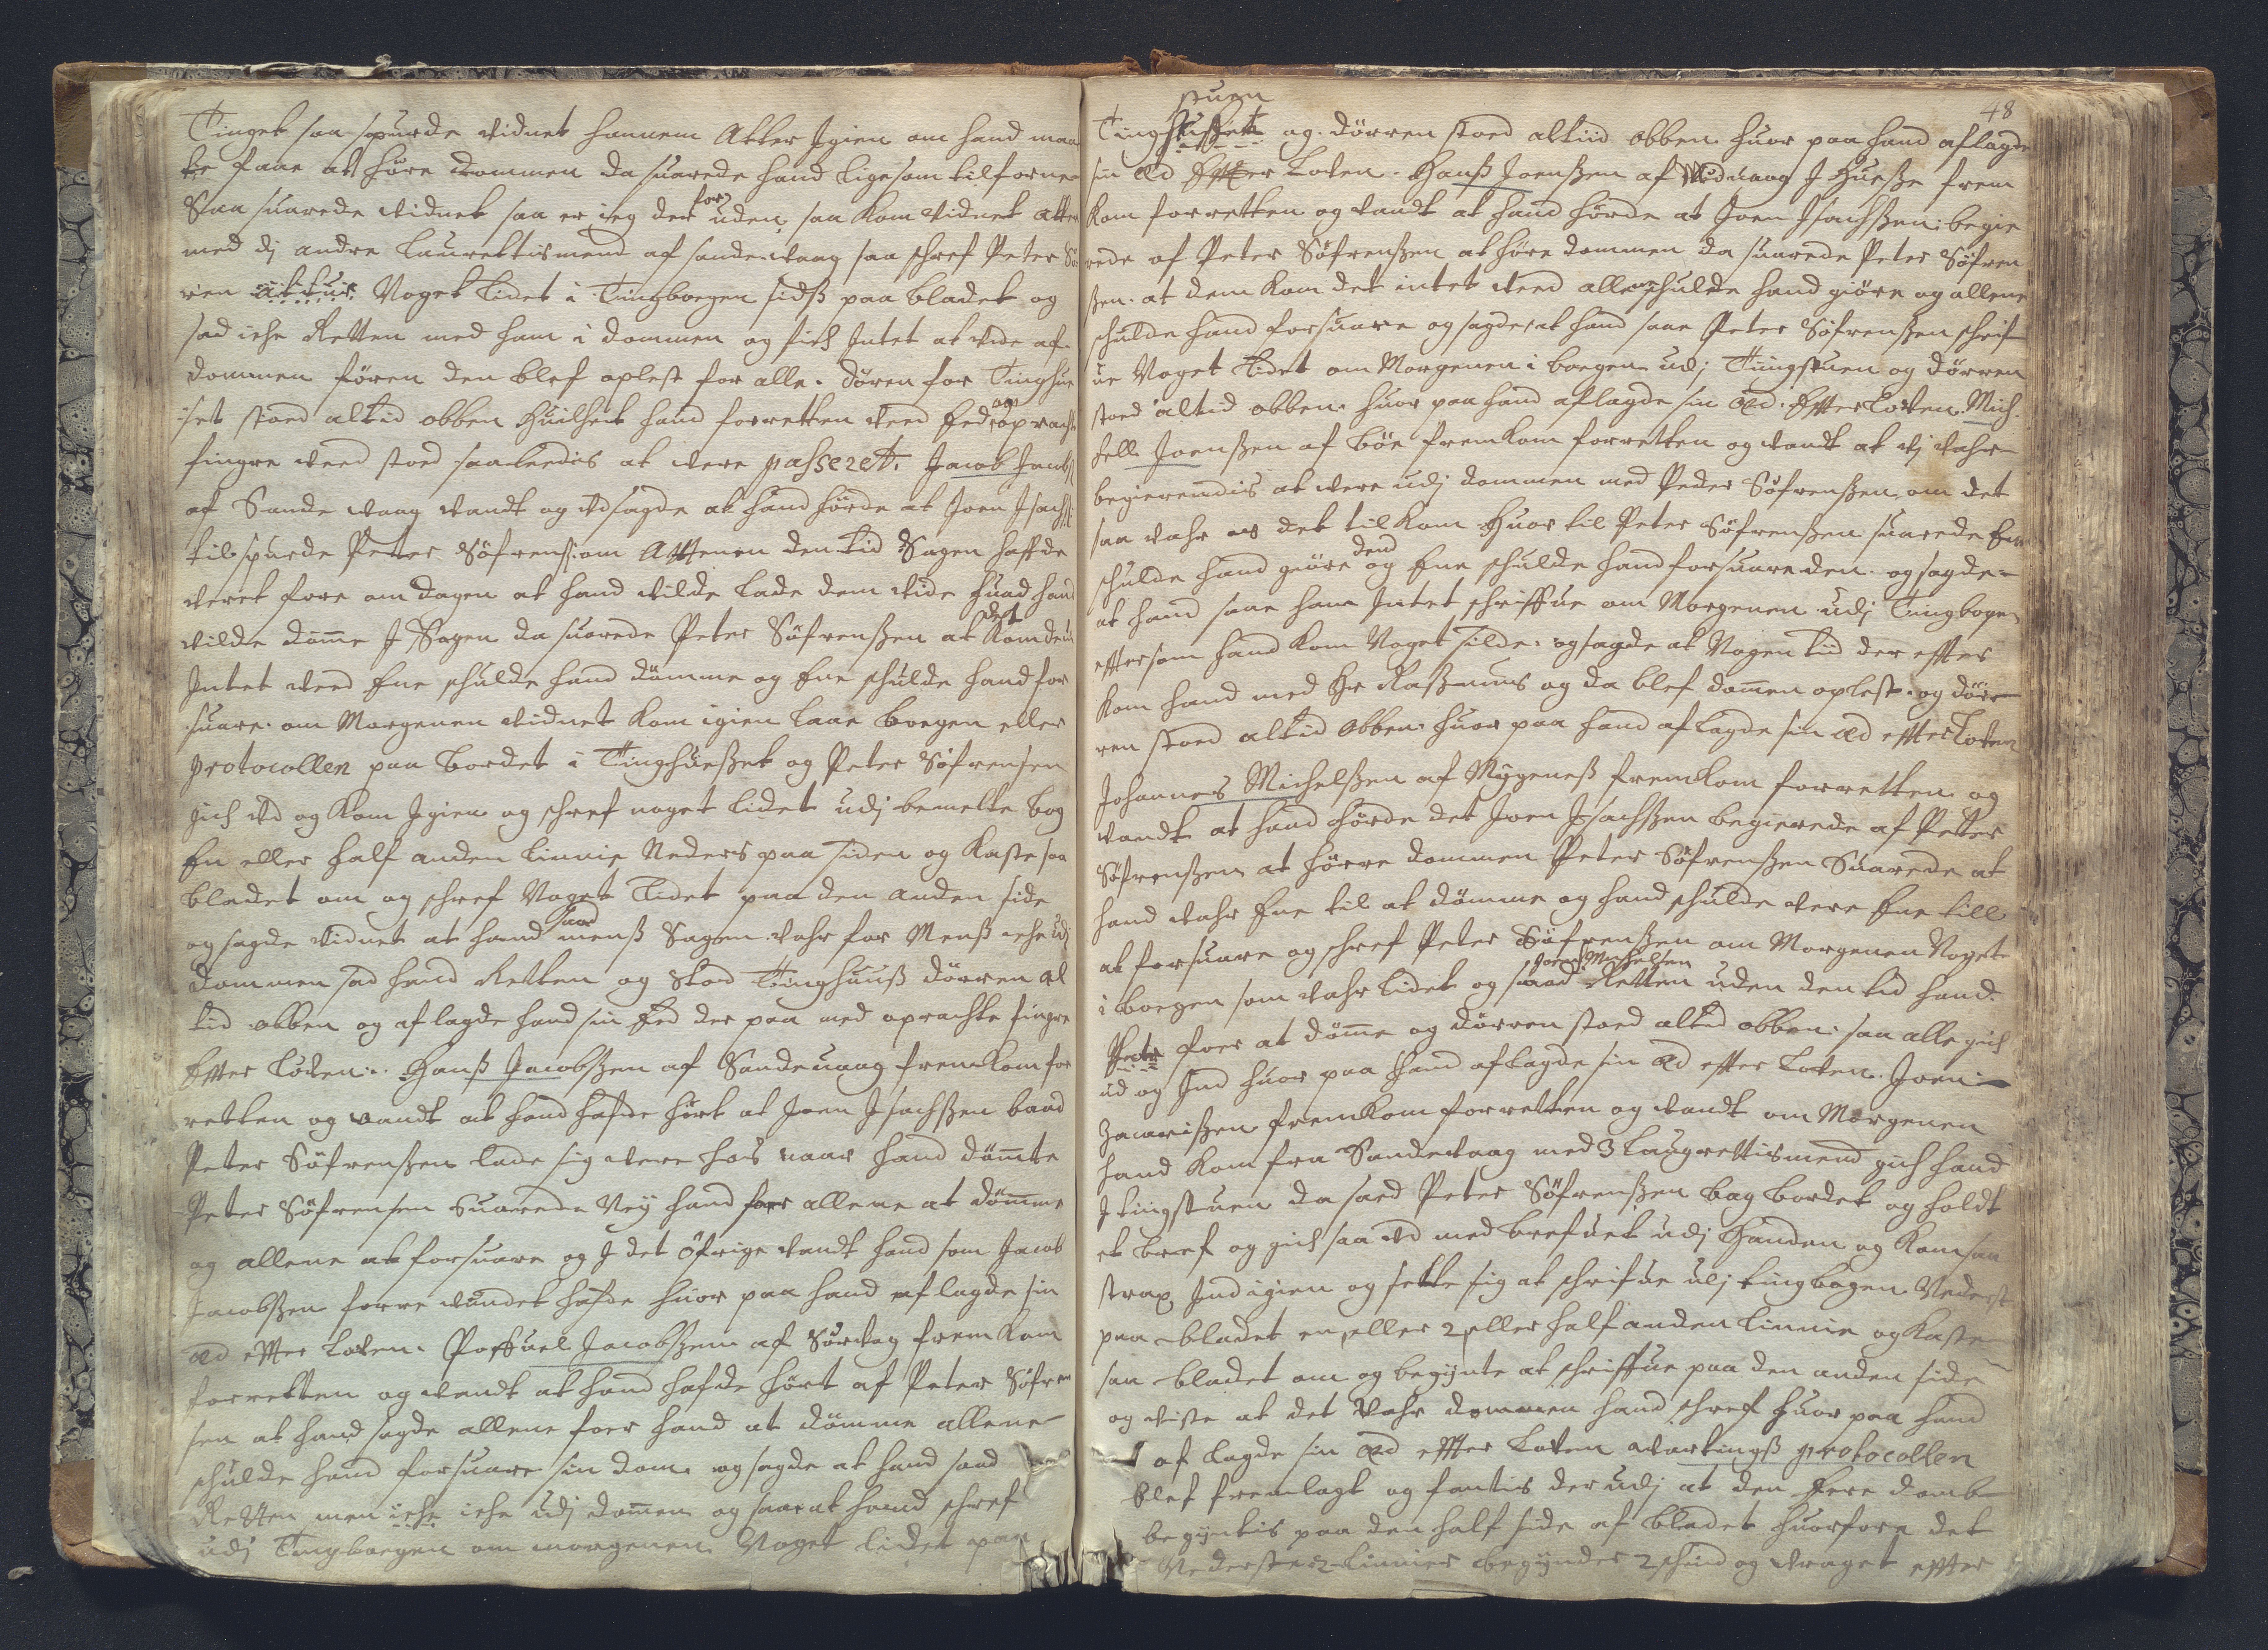 Tinget saa spurde vidnet hannem Atter Igien om hand maa
te faae at høre dommen da suarede hand ligesom tilforne
Saa suarede vidnet saa er ieg der for uden, saa kom vidnet atter
med dj andre laurettismend af sandevaag saa schref Peter Sø
ren Noget lidet i Tingboegen sidst paa bladet og
sad iche Retten med ham i dommen og fich Intet at vide af
dommen føren den blef oplest for alle. døren for Tinghue
set stoed altid obben Huilchet hand forretten med Eed og opracht
fingre ved stoed saaledis at vere passeret. Jacob Jacobs
af Sande vaag vandt og Vdsagde at hand hørde at Joen Isachs
tilspurde Peter Søfrenss: om Afftenen den tid Sagen haffde
veret fore om dagen at hand vilde lade dem vide huad hand
vilde dømme I Sagen da suarede Peter Søfrenssen at det kom dem
Intet ved Ene schulde hand dömme og Ene schulde hand for
suare. om Morgenen vidnet kom igien laae boegen eller
protocollen paa bordet i Tinghuesset og Peter Søfrensen
gich vd og kom Igien og schref noget lidet udj bemelte bog
En eller half anden linnie Neders paa siden og kaste saa
bladet om og schref Noget lidet paa den anden side
og sagde vidnet at hand saad menss Sagen vahr for Menss iche udj
dommen sad hand Retten og stod Tinghuuss dörren al
tid obben og aflagde hand sin Eed der paa med oprachte fingre
Effter loven. Hanss Jacobssen af Sandeuaag fremkom for
retten og vandt at hand hafde hørt at Joen Isachssen baad
Peter Söfrenssen lade sig vere hos naar hand dömte
Peter Söfrensen Suarede Nej hand foer allene at dömme
og allene at forsuare og I det öfrige vandt hand som Jacob
Jacobssen forre vundet hafde huor paa hand aflagde sin
æd effter loven. Poffuel Jacobssen af Sørvag fremkom
forretten og vandt at hand hafde hört af Peter Söfren
sen at hand sagde allene foer hand at dömme allene
schulde hand forsuare sin dom og sagde at hand saad
Retten men iche iche udj dommen og saae at hand schref
udj Tingboegen om morgenen Noget lidet paa
48
stuen
Tinghusset og dörren stoed altiid obben huor paa hand aflagde
sin æd Effter Loven. Hanss Joenssen af Midvaag I Huesse frem
kom forretten og vandt at hand hörde at Joen Isachssen: begie
rede af Peter Söfrenssen at høre dommen da suarede Peter Söfren
ssen. at dem kom det intet ved allene schulde hand giöre og allene
schulde hand forsuare og sagde at hand saae Peter Söfrenssen schrif
ue Noget lidet om Morgenen i boegen udj Tingstuen og dörren
stoed altid obben. huor paa hand aflagde sin æd. Effter Loven. Mich
kell Joenssen af böe fremkom forretten og vandt at vj vahr
begierendis at vere udj dommen med Peder Söfrenssen, om det
saa vahr os det tilkom Huor til Peter Söfrenssen suarede Ene
schulde hand giöre den og Ene schulde hand forsuare den. og sagde
at hand saae ham Intet schriffue om Morgenen udj Tingbogen
effter som hand kom Noget silde. og sagde at Nogen tid der effter
kom hand med Hr Rassmus og da blef dommen oplest. og dör
ren stoed altid obben. huor paa hand aflagde sin æd effter Loven
Johannes Michelssen af Mygeness fremkom forretten og
vandt at hand hörde det Joen Isachssen begierede af Petter
Söfrenssen at hörre dommen Peter Söfrenssen Suarede at
hand vahr Ene til at dömme og hand schulde vere Ene till
at forsuare og schref Peter Söfrenssen om Morgenen Noget
i boegen som vahr lidet og saad Joen Michelsen Retten uden den tid hand
Peter foer at dömme og dörren stoed altid obben: saa alle gich
ud og Ind huor paa hand aflagde sin æd effter Loven. Joen
Zacarissen fremkom forretten og vandt om Morgenen
hand kom fra Sandevaag med 3 laugrettismend gich hand
I tingstuen da saed Peter Söfrenssen bag bordet og holdt
et bref og gich saa vd med brefuet udj Handen og kom saa
strax Ind igien og sette sig at schrifue udj tingbogen Nederst
paa bladet en eller 2 eller half anden linnie og kaste
saa bladet om og begynte at schriffue paa den anden side
og viste at det vahr dommen hand schref huor paa hand
af lagde sin æd effter Loven vartingss protocollen
blef fremlagt og fantis der udj at den Ene domb
begyntis paa den half side af bladet huorfore det
Nederste 2 linnier begynder 2 schind og draget effter